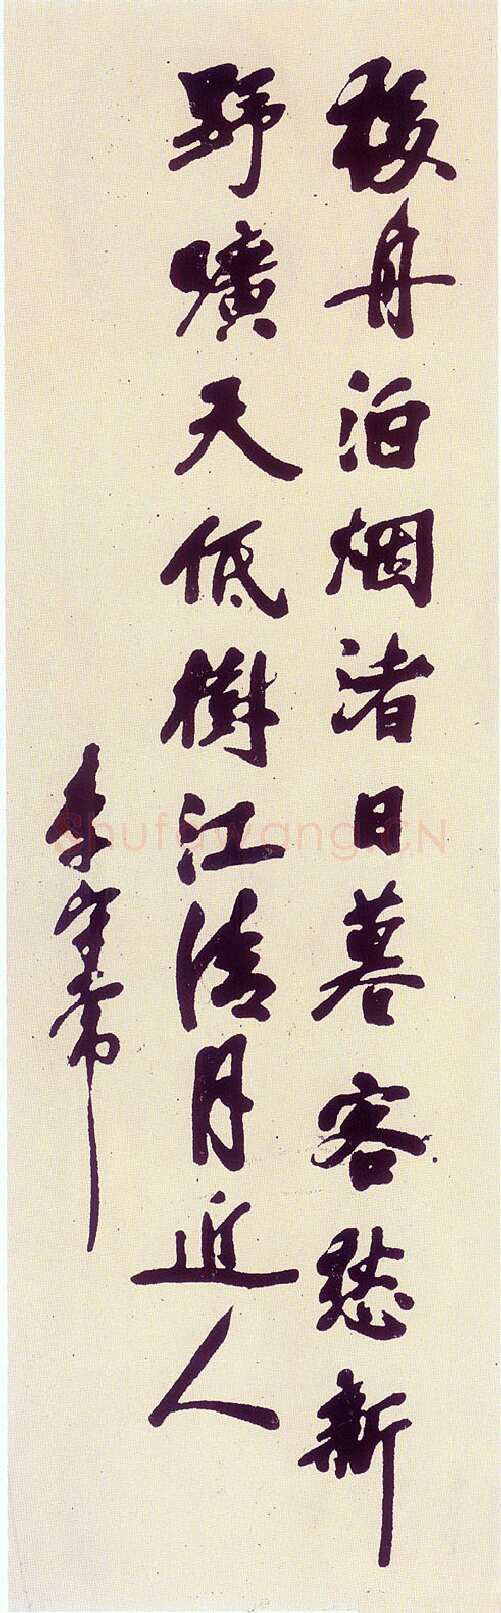 移舟泊烟渚日暮客愁新
野曠天低樹江清月近人
李守常
Shufawang.CN